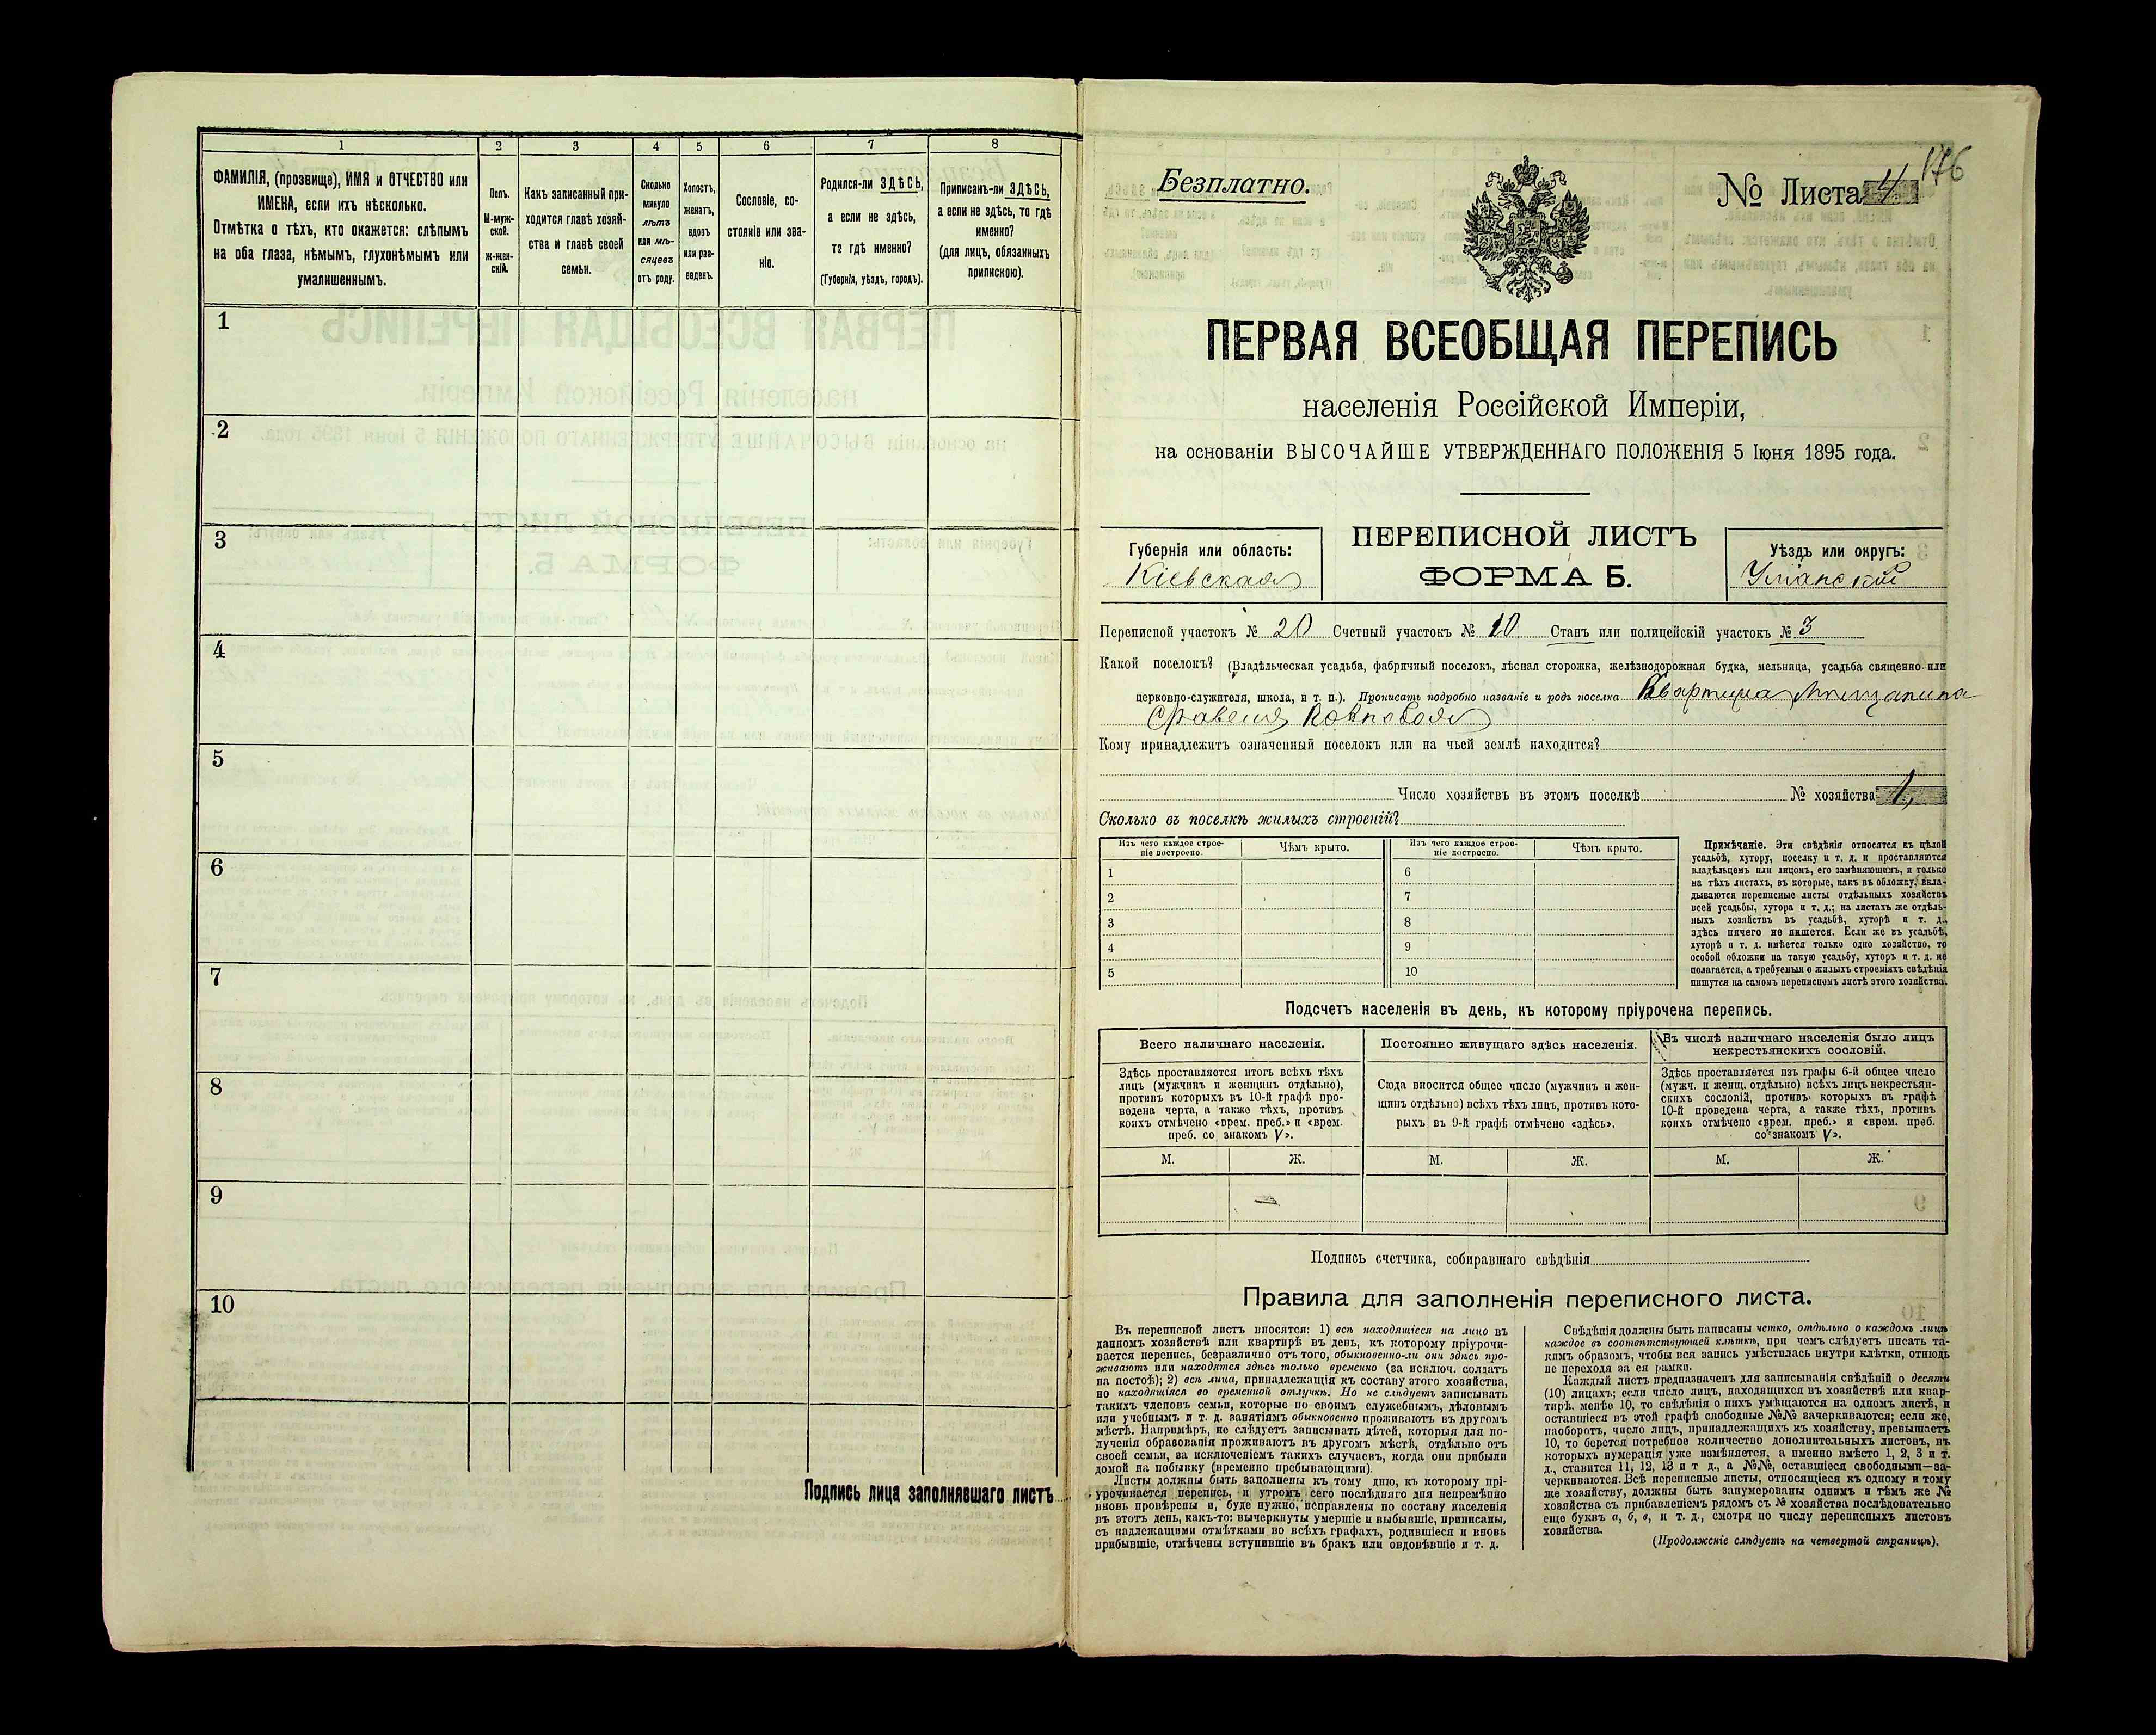 1 2 3 4 5 6 7 8
ФАМИЛІЯ, (прозвище), ИМЯ и ОТЧЕСТВО или
ИМЕНА, если ихъ нѣсколько.
Отмѣтка о тѣхъ, кто окажется: слѣпымъ
на оба глаза, нѣмымъ, глухонѣмымъ или
умалишеннымъ.
Полъ.
М-муж-
ской.
Ж-жен-
скій.
Какъ записанный при-
ходится главѣ хозяй-
ства и главѣ своей
семьи.
Сколько
минуло
лѣтъ
или мѣ-
сяцевъ
отъ роду.
Холостъ,
женатъ,
вдовъ
или раз-
веденъ.
Сословіе, со-
стояніе или зва-
ніе.
Родился-ли ЗДѢСЬ,
а если не здѣсь,
то гдѣ именно?
(Губернія, уѣздъ, городъ).
Приписанъ-ли ЗДѢСЬ,
а если не здѣсь, то гдѣ
именно?
(для лицъ, обязанныхъ
припискою).
1
2
3
4
5
6
7
8
9
10
Подпись лица заполнявшаго листъ
Безплатно.
№ Листа 4
176
ПЕРВАЯ ВСЕОБЩАЯ ПЕРЕПИСЬ
населенія Россійской Имперіи,
на основаніи ВЫСОЧАЙШЕ УТВЕРЖДЕННАГО ПОЛОЖЕНІЯ 5 Іюня 1895 года.
Губернія или область:
Кіевская
ПЕРЕПИСНОЙ ЛИСТЪ
ФОРМА Б.
Уѣздъ или округъ:
Уманскій
Переписной участокъ № 20 Счетный участокъ № 10 Станъ или полицейскій участокъ № 3
Какой поселокъ? (Владѣльческая усадьба, фабричный поселокъ, лѣсная сторожка, желѣзнодорожная будка, мельница, усадьба священно- или
церковно-служителя, школа, и т. п.). Прописать подробно названіе и родъ поселка Квартира Мѣщанина
Кому принадлежитъ означенный поселокъ или на чьей землѣ находится?
Число хозяйствъ въ этомъ поселкѣ № хозяйства 1,
Сколько въ поселкѣ жилыхъ строеній?
Изъ чего каждое строе-
ніе построено.
Чѣмъ крыто.
Изъ чего каждое строе-
ніе построено.
Чѣмъ крыто.
1 6
2 7
3 8
4 9
5 10
Примѣчаніе. Эти свѣдѣнія относятся къ цѣлой
усадьбѣ, хутору, поселку и т. д. и проставляются
владѣльцемъ или лицомъ, его замѣняющимъ, и только
на тѣхъ листахъ, въ которые, какъ въ обложку, вкла-
дываются переписные листы отдѣльныхъ хозяйствъ
всей усадьбы, хутора и т. д.; на листахъ же отдѣль-
ныхъ хозяйствъ въ усадьбѣ, хуторѣ и т. д.,
здѣсь ничего не пишется. Если же въ усадьбѣ,
хуторѣ и т. д. имѣется только одно хозяйство, то
особой обложки на такую усадьбу, хуторъ и т. д. не
полагается, а требуемыя о жилыхъ строеніяхъ свѣдѣнія
пишутся на самомъ переписномъ листѣ этого хозяйства.
Подсчетъ населенія въ день, къ которому пріурочена перепись.
Всего наличнаго населенія.
Здѣсь проставляется итогъ всѣхъ тѣхъ
лицъ (мужчинъ и женщинъ отдѣльно),
противъ которыхъ въ 10-й графѣ про-
ведена черта, а также тѣхъ, противъ
коихъ отмѣчено «врем. преб.» и «врем.
преб. со знакомъ V».
Постоянно живущаго здѣсь населенія.
Сюда вносится общее число (мужчинъ и жен-
щинъ отдѣльно) всѣхъ тѣхъ лицъ, противъ кото-
рыхъ въ 9-й графѣ отмѣчено «здѣсь».
Въ числѣ наличнаго населенія было лицъ
некрестьянскихъ сословій.
Здѣсь проставляется изъ графы 6-й общее число
(мужч. и женщ. отдѣльно) всѣхъ лицъ некрестьян-
скихъ сословій, противъ которыхъ въ графѣ
10-й проведена черта, а также тѣхъ, противъ
коихъ отмѣчено «врем. преб.» и «врем. преб.
со знакомъ V».
М. Ж. М. Ж. М. Ж.
Подпись счетчика, собиравшаго свѣдѣнія
Правила для заполненія переписного листа.
Въ переписной листъ вносятся: 1) всѣ находящіеся на лицо въ
данномъ хозяйствѣ или квартирѣ въ день, къ которому пріурочи-
вается перепись, безразлично отъ того, обыкновенно-ли они здѣсь про-
живаютъ или находятся здѣсь только временно (за исключ. солдатъ
на постоѣ); 2) всѣ лица, принадлежащія къ составу этого хозяйства,
но находящіяся во временной отлучкѣ. Но не слѣдуетъ записывать
такихъ членовъ семьи, которые по своимъ служебнымъ, дѣловымъ
или учебнымъ и т. д. занятіямъ обыкновенно проживаютъ въ другомъ
мѣстѣ. Напримѣръ, не слѣдуетъ записывать дѣтей, которыя для по-
лученія образованія проживаютъ въ другомъ мѣстѣ, отдѣльно отъ
своей семьи, за исключеніемъ такихъ случаевъ, когда они прибыли
домой на побывку (временно пребывающими).
Листы должны быть заполнены къ тому дню, къ которому прі-
урочивается перепись, и утромъ сего послѣдняго дня непремѣнно
вновь провѣрены и, буде нужно, исправлены по составу населенія
въ этотъ день, какъ-то: вычеркнуты умершіе и выбывшіе, приписаны,
съ надлежащими отмѣтками во всѣхъ графахъ, родившіеся и вновь
прибывшіе, отмѣчены вступившіе въ бракъ или овдовѣвшіе и т. д.
Свѣдѣнія должны быть написаны четко, отдѣльно о каждомъ лицѣ
каждое въ соотвѣтствующей клѣткѣ, при чемъ слѣдуетъ писать та-
кимъ образомъ, чтобы вся запись умѣстилась внутри клѣтки, отнюдь
не переходя за ея рамки.
Каждый листъ предназначенъ для записыванія свѣдѣній о десяти
(10) лицахъ; если число лицъ, находящихся въ хозяйствѣ или квар-
тирѣ, менѣе 10, то свѣдѣнія о нихъ умѣщаются на одномъ листѣ, и
оставшіеся въ этой графѣ свободные №№ зачеркиваются; если же,
наоборотъ, число лицъ, принадлежащихъ къ хозяйству, превышаетъ
10, то берется потребное количество дополнительныхъ листовъ, въ
которыхъ нумерація уже измѣняется, а именно вмѣсто 1, 2, 3 и т.
д., ставится 11, 12, 13 и т д., а №№, оставшіеся свободными—за-
черкиваются. Всѣ переписные листы, относящіеся къ одному и тому
же хозяйству, должны быть занумерованы однимъ и тѣмъ же №
хозяйства съ прибавленіемъ рядомъ съ № хозяйства послѣдовательно
еще буквъ а, б, в, и т. д., смотря по числу переписныхъ листовъ
хозяйства.
(Продолженіе слѣдуетъ на четвертой страницѣ).